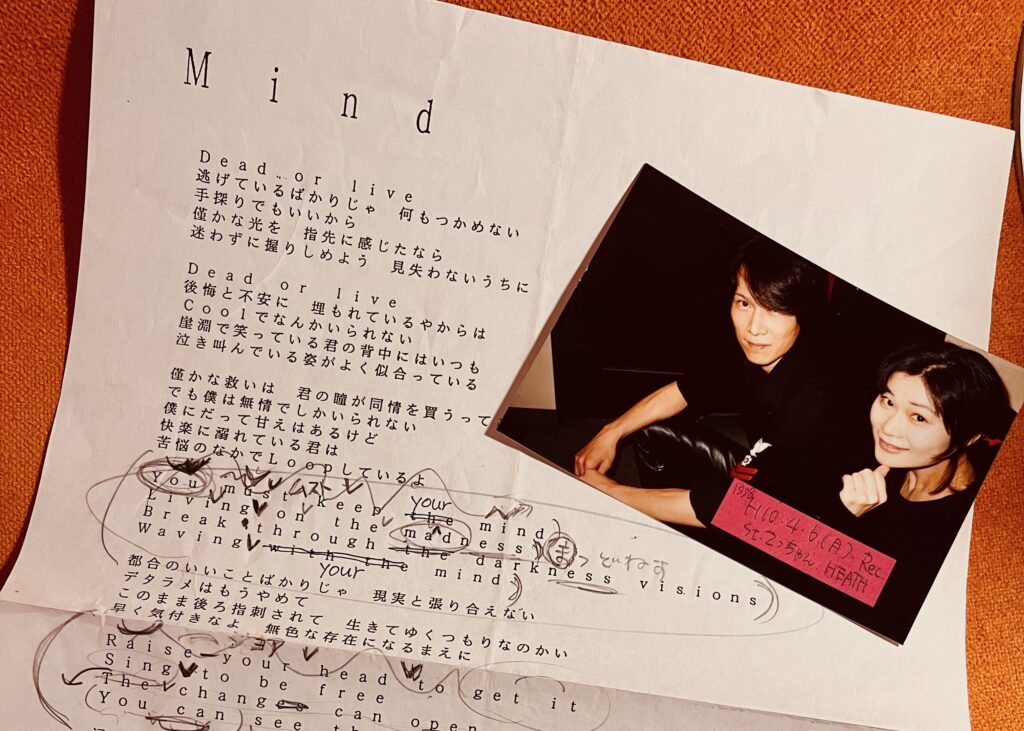 Mind
Dead or live
逃げているばかりじゃ　何もつかめない
手探りでもいいから
僅かな光を　指先に感じたなら
迷わずに握りしめよう　見失わないうちに
Dead or live
後悔と不安に　埋もれているやからは
Coolでなんかいられない
崖淵で笑っている君の背中にはいつも
泣き叫んでいる姿がよく似合っている
僅かな救いは　君の瞳が同情を買うって
でも僕は無情でしかいられない
僕にだって甘えはあるけど
快楽に溺れている君は
苦悩のなかでLoopしているよ
マスト
your
You must keep the mind
Living on the madness
まっどねす
Break through the darkness visions
Waving with the mind
your
都合のいいことばかりじゃ　現実と張り合えない
デタラメはもうやめて
このまま後ろ指刺されて　生きてゆくつもりなのかい
早く気付きなよ　無色な存在になるまえに
Raise your head to get it
Sing to be free
The changes can open
You can see
1998
H10.4.6(月). Rec
HEATH